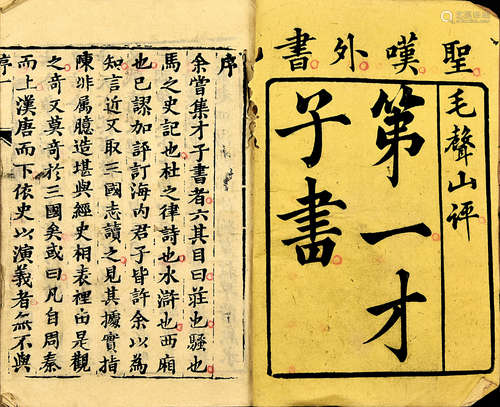 聖嘆外書
毛聲山評
第一才
子書
序
余嘗集才子書者六其目曰莊也騷也
馬之史記也杜之律詩也水滸也西廂
也已謬加評訂海内君子皆許余以為
知言近又取三國志讀之見其據實指
陳非属臆造堪與經史相表裡由是觀
之奇又莫奇於三國矣或曰凡自周秦
而上漢唐而下依史以演義者無不與
序一